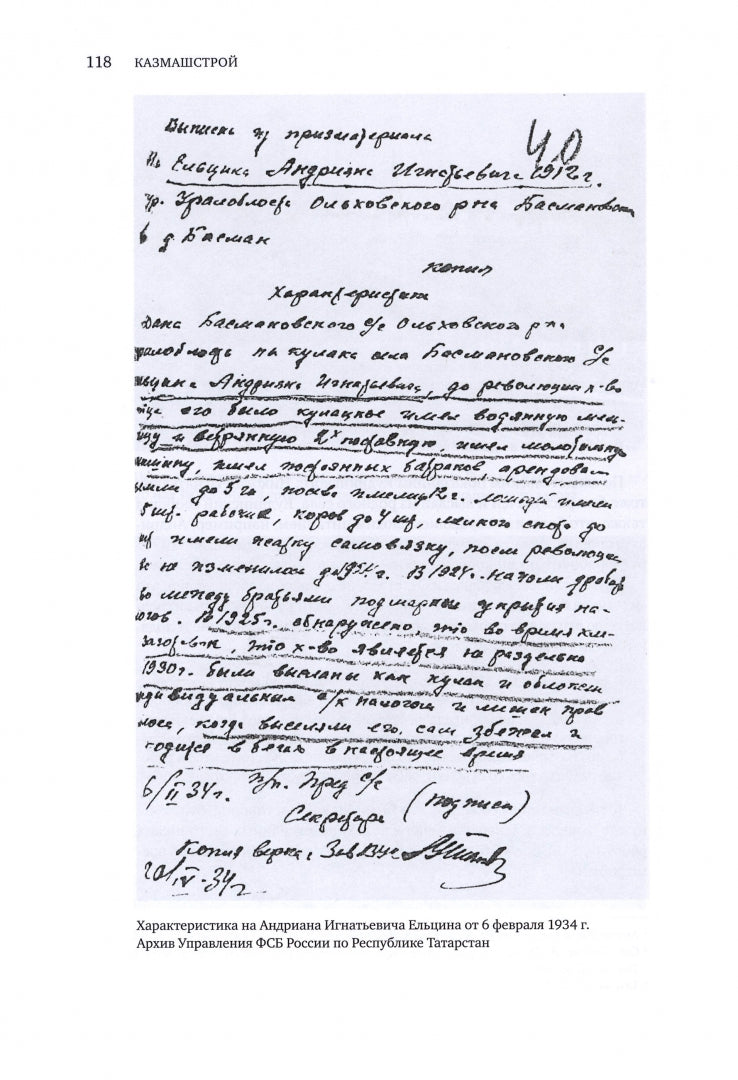 118 КАЗМАШСТРОЙ
40
Выпись из призматериала
На Ельцина Андрияна Игнатьевича 1912 г.
ур. Уралобласти Ольховского р-на Басмановск
в д. Басман
копия
Характеристика
Дана Басмановского с/с Ольховского р-на
ралобласть на кулака села Басмановского с/с
льцина Андрияна Игнатьевича, до революции х-во
отца его было кулацкое имел водянную мел-
ницу и ветрянную 2х поставную, имел молотильну
машину, имел постоянных батраков, арендовал
земли до 5 га, посева имели 12 г. лошадей имели
5 шт. рабочих, коров до 4 шт, мелкого скота до
шт имели жатку самовязку, после революции
не изменилось до 1924 г. В 1924 г. начали дроб
во между братьями под маркой укрытия на-
логов. В 1925 г. обнаружено, что во время хле
заготовок, что х-во является не раздельно
1930 г. были высланы как кулак и обложен
индивидуальным с/х налогом и лишен прав
лоса, когда выселяли его, сам збежал и
ходится в бегах в настоящее время
6/II 34 г. п/п. Пред с/с
Секретарь (подписи)
Копия верна: Зав
20/IV-34 г
Характеристика на Андриана Игнатьевича Ельцина от 6 февраля 1934 г.
Архив Управления ФСБ России по Республике Татарстан